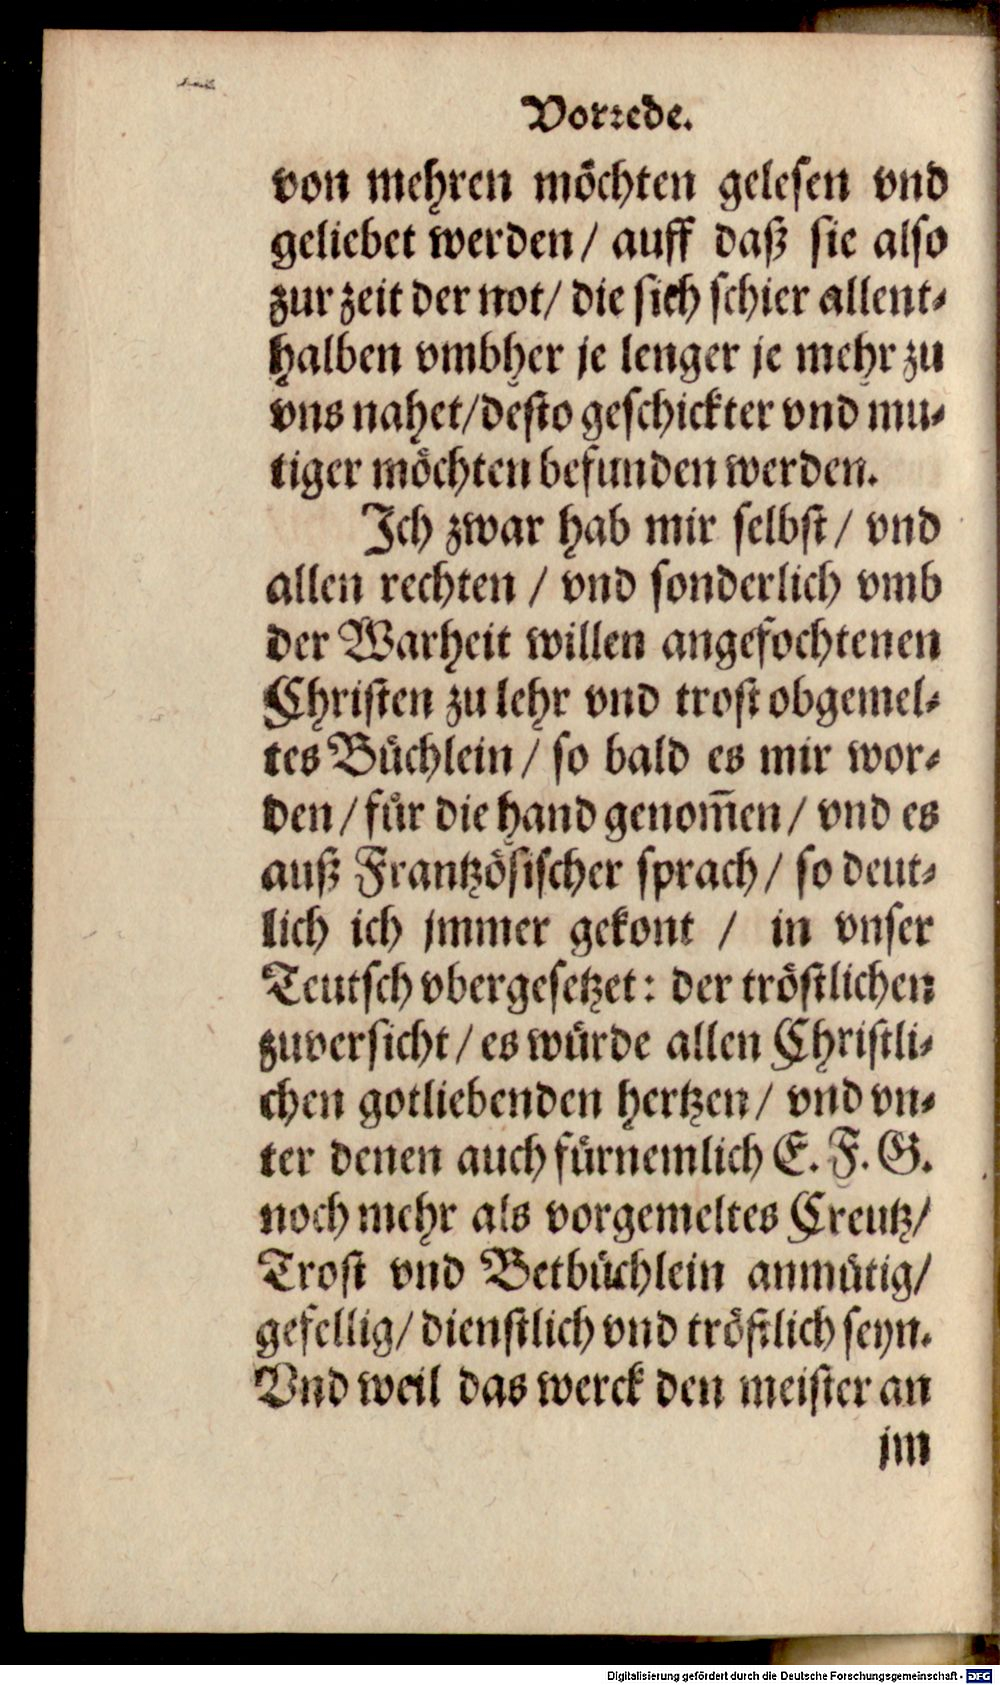 Vorrede.
von mehren möchten gelesen vnd
geliebet werden / auff daß sie also
zur zeit der not / die sich schier allent-
halben vmbher je lenger je mehr zu
vns nahet / desto geschickter vnd mu-
tiger möchten befunden werden.
Ich zwar hab mir selbst / vnd
allen rechten / vnd sonderlich vmb
der Warheit willen angefochtenen
Christen zu lehr vnd trost obgemel-
tes Büchlein / so bald es mir wor-
den / für die hand genom̃en / vnd es
auß Frantzösischer sprach / so deut-
lich ich jmmer gekont / in vnser
Teutsch vbergesetzet: der tröstlichen
zuversicht / es würde allen Christli-
chen gotliebenden hertzen / vnd vn-
ter denen auch fürnemlich E. F. G.
noch mehr als vorgemeltes Creutz /
Trost vnd Betbüchlein anmütig /
gefellig / dienstlich vnd tröstlich seyn.
Vnd weil das werck den meister an
jm
Digitalisierung gefördert durch die Deutsche Forschungsgemeinschaft - DFG